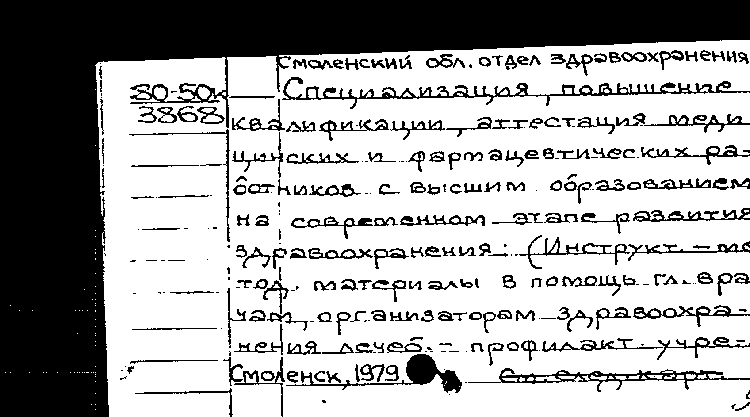 Смоленский обл. отдел здравоохранения
80-50к Специализация, повышение
3868 квалификации, аттестация меди
цинских и фармацевтических ра-
ботников с высшим образованием
на современном этапе развития
здравоохранения: (Инструкт.-ме
тод. материалы в помощь гл. вра
чам, организаторам здравоохра-
нения лечеб.-профилакт. учре-
Смоленск, 1979. См. след. карт.